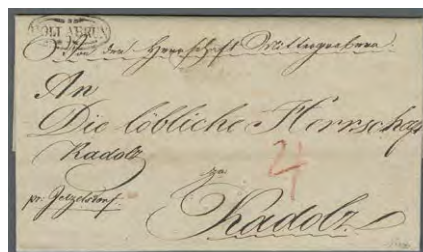 Von der Herrschaft
An
Die löbliche Herrschaft
Kadolz
4
zu
pr. Guzelsdorf.
Kadolz.